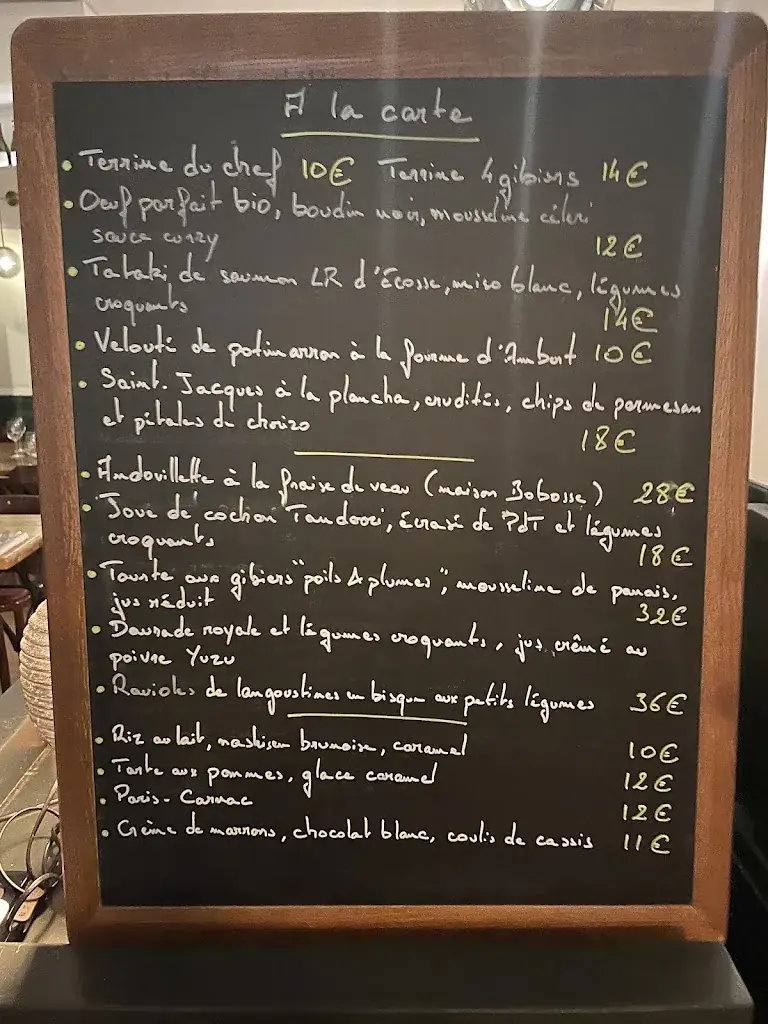 A la carte
• Terrine du chef 10€ Terrine 4 gibiers 14€
• Oeuf parfait bio, boudin noir, mousseline céleri
sauce curry 12€
• Tataki de saumon LR d'Écosse, miso blanc, légumes
croquants 14€
• Velouté de potimarron à la fourme d'Ambert 10€
• Saint-Jacques à la plancha, crudités, chips de parmesan
et pétales de chorizo 18€
• Andouillette à la fraise de veau (maison Bobosse) 28€
• Joue de cochon Tandoori, écrasé de PdT et légumes
croquants 18€
• Tourte aux gibiers "poils & plumes", mousseline de panais,
jus réduit 32€
• Daurade royale et légumes croquants, jus crémé au
poivre Yuzu
• Ravioles de langoustines en bisque aux petits légumes 36€
• Riz au lait, nashi en brunoise, caramel 10€
• Tarte aux pommes, glace caramel 12€
• Paris-Carnac 12€
• Crème de marrons, chocolat blanc, coulis de cassis 11€